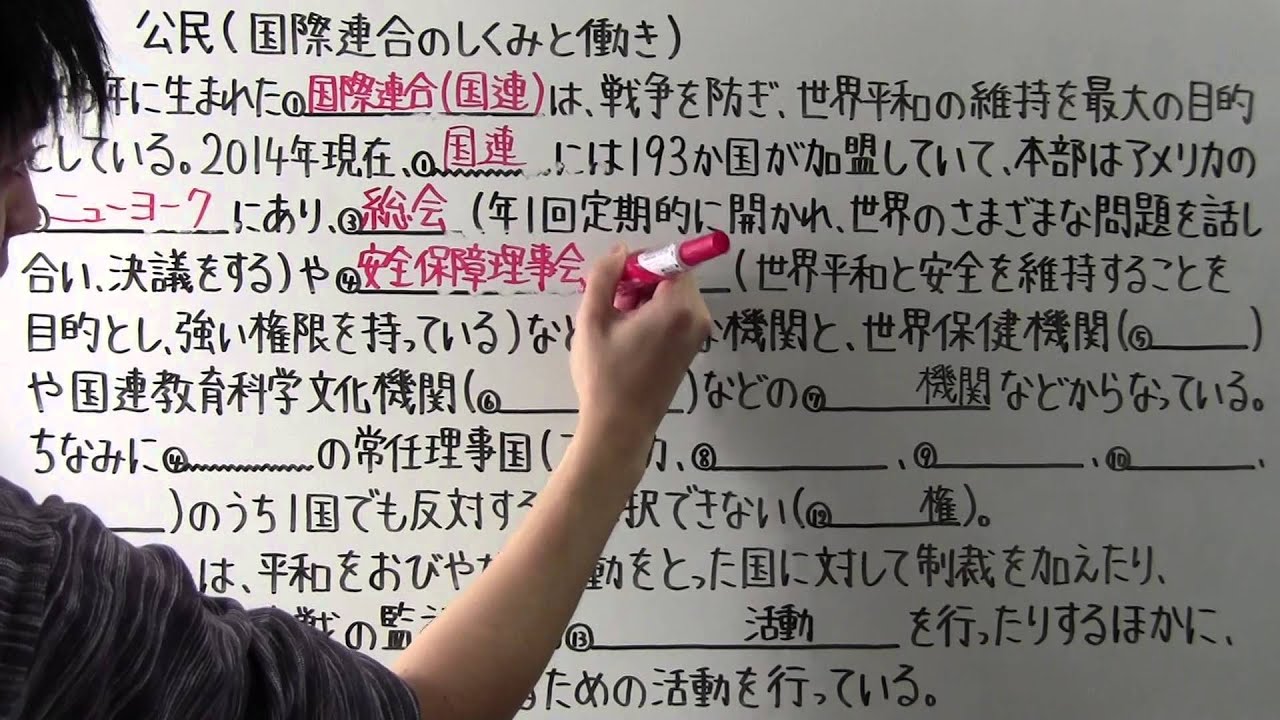 公民(国際連合のしくみと働き)
年に生まれた①国際連合(国連)は、戦争を防ぎ、世界平和の維持を最大の目的
としている。2014年現在、①国連には193か国が加盟していて、本部はアメリカの
ニューヨークにあり、③総会(年1回定期的に開かれ、世界のさまざまな問題を話し
合い、決議をする)や④安全保障理事会(世界平和と安全を維持することを
目的とし、強い権限を持っている)など な機関と、世界保健機関(⑤ )
や国連教育科学文化機関(⑥ )などの⑦ 機関などからなっている。
ちなみに④ の常任理事国( 、⑧ 、⑨ 、⑩ 、
)のうち1国でも反対する 択できない(⑫ 権)。
は、平和をおびやか 動をとった国に対して制裁を加えたり、
戦の監 ⑬ 活動 を行ったりするほかに、
るための活動を行っている。